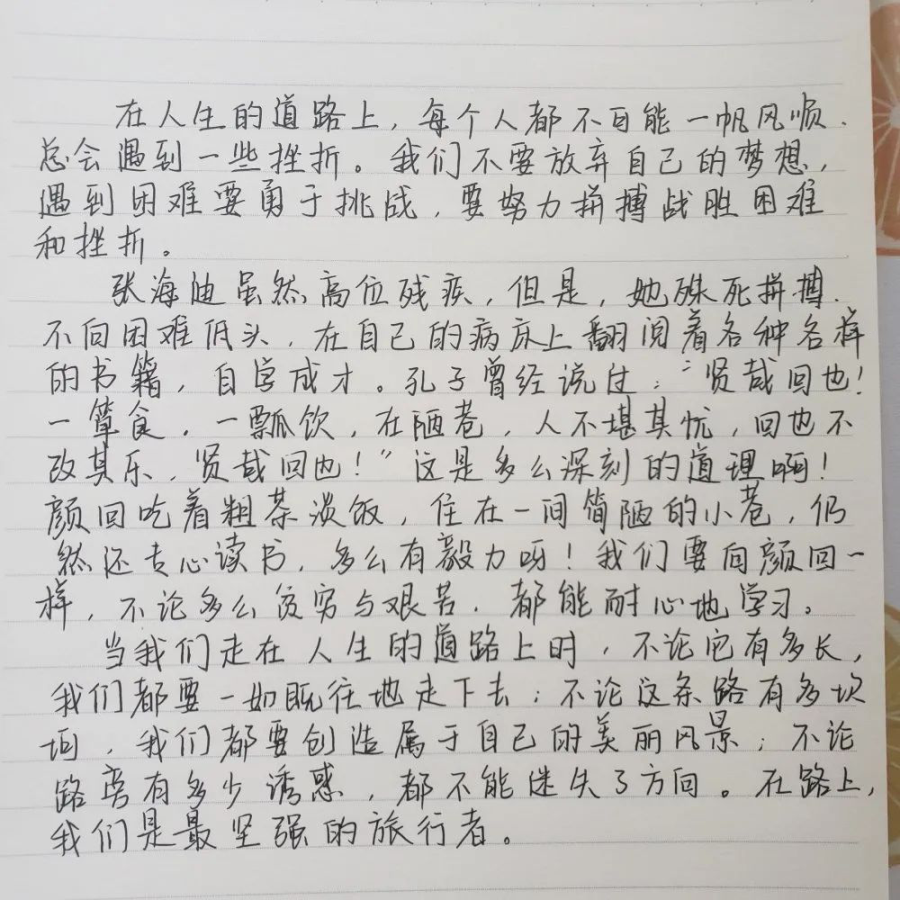 在人生的道路上，每个人都不可能一帆风顺．
总会遇到一些挫折。我们不要放弃自己的梦想，
遇到困难要勇于挑战，要努力拼搏战胜困难
和挫折。
张海迪虽然高位残疾，但是，她殊死拼搏．
不向困难低头，在自己的病床上翻阅着各种各样
的书籍，自学成才。孔子曾经说过：“贤哉回也！
一箪食，一瓢饮，在陋巷，人不堪其忧，回也不
改其乐，贤哉回也！”这是多么深刻的道理啊！
颜回吃着粗茶淡饭，住在一间简陋的小巷，仍
然还专心读书，多么有毅力呀！我们要向颜回一
样，不论多么贫穷与艰苦．都能耐心地学习。
当我们走在人生的道路上时，不论它有多长，
我们都要一如既往地走下去；不论这条路有多坎
坷，我们都要创造属于自己的美丽风景；不论
路旁有多少诱惑，都不能迷失了方向。在路上，
我们是最坚强的旅行者。